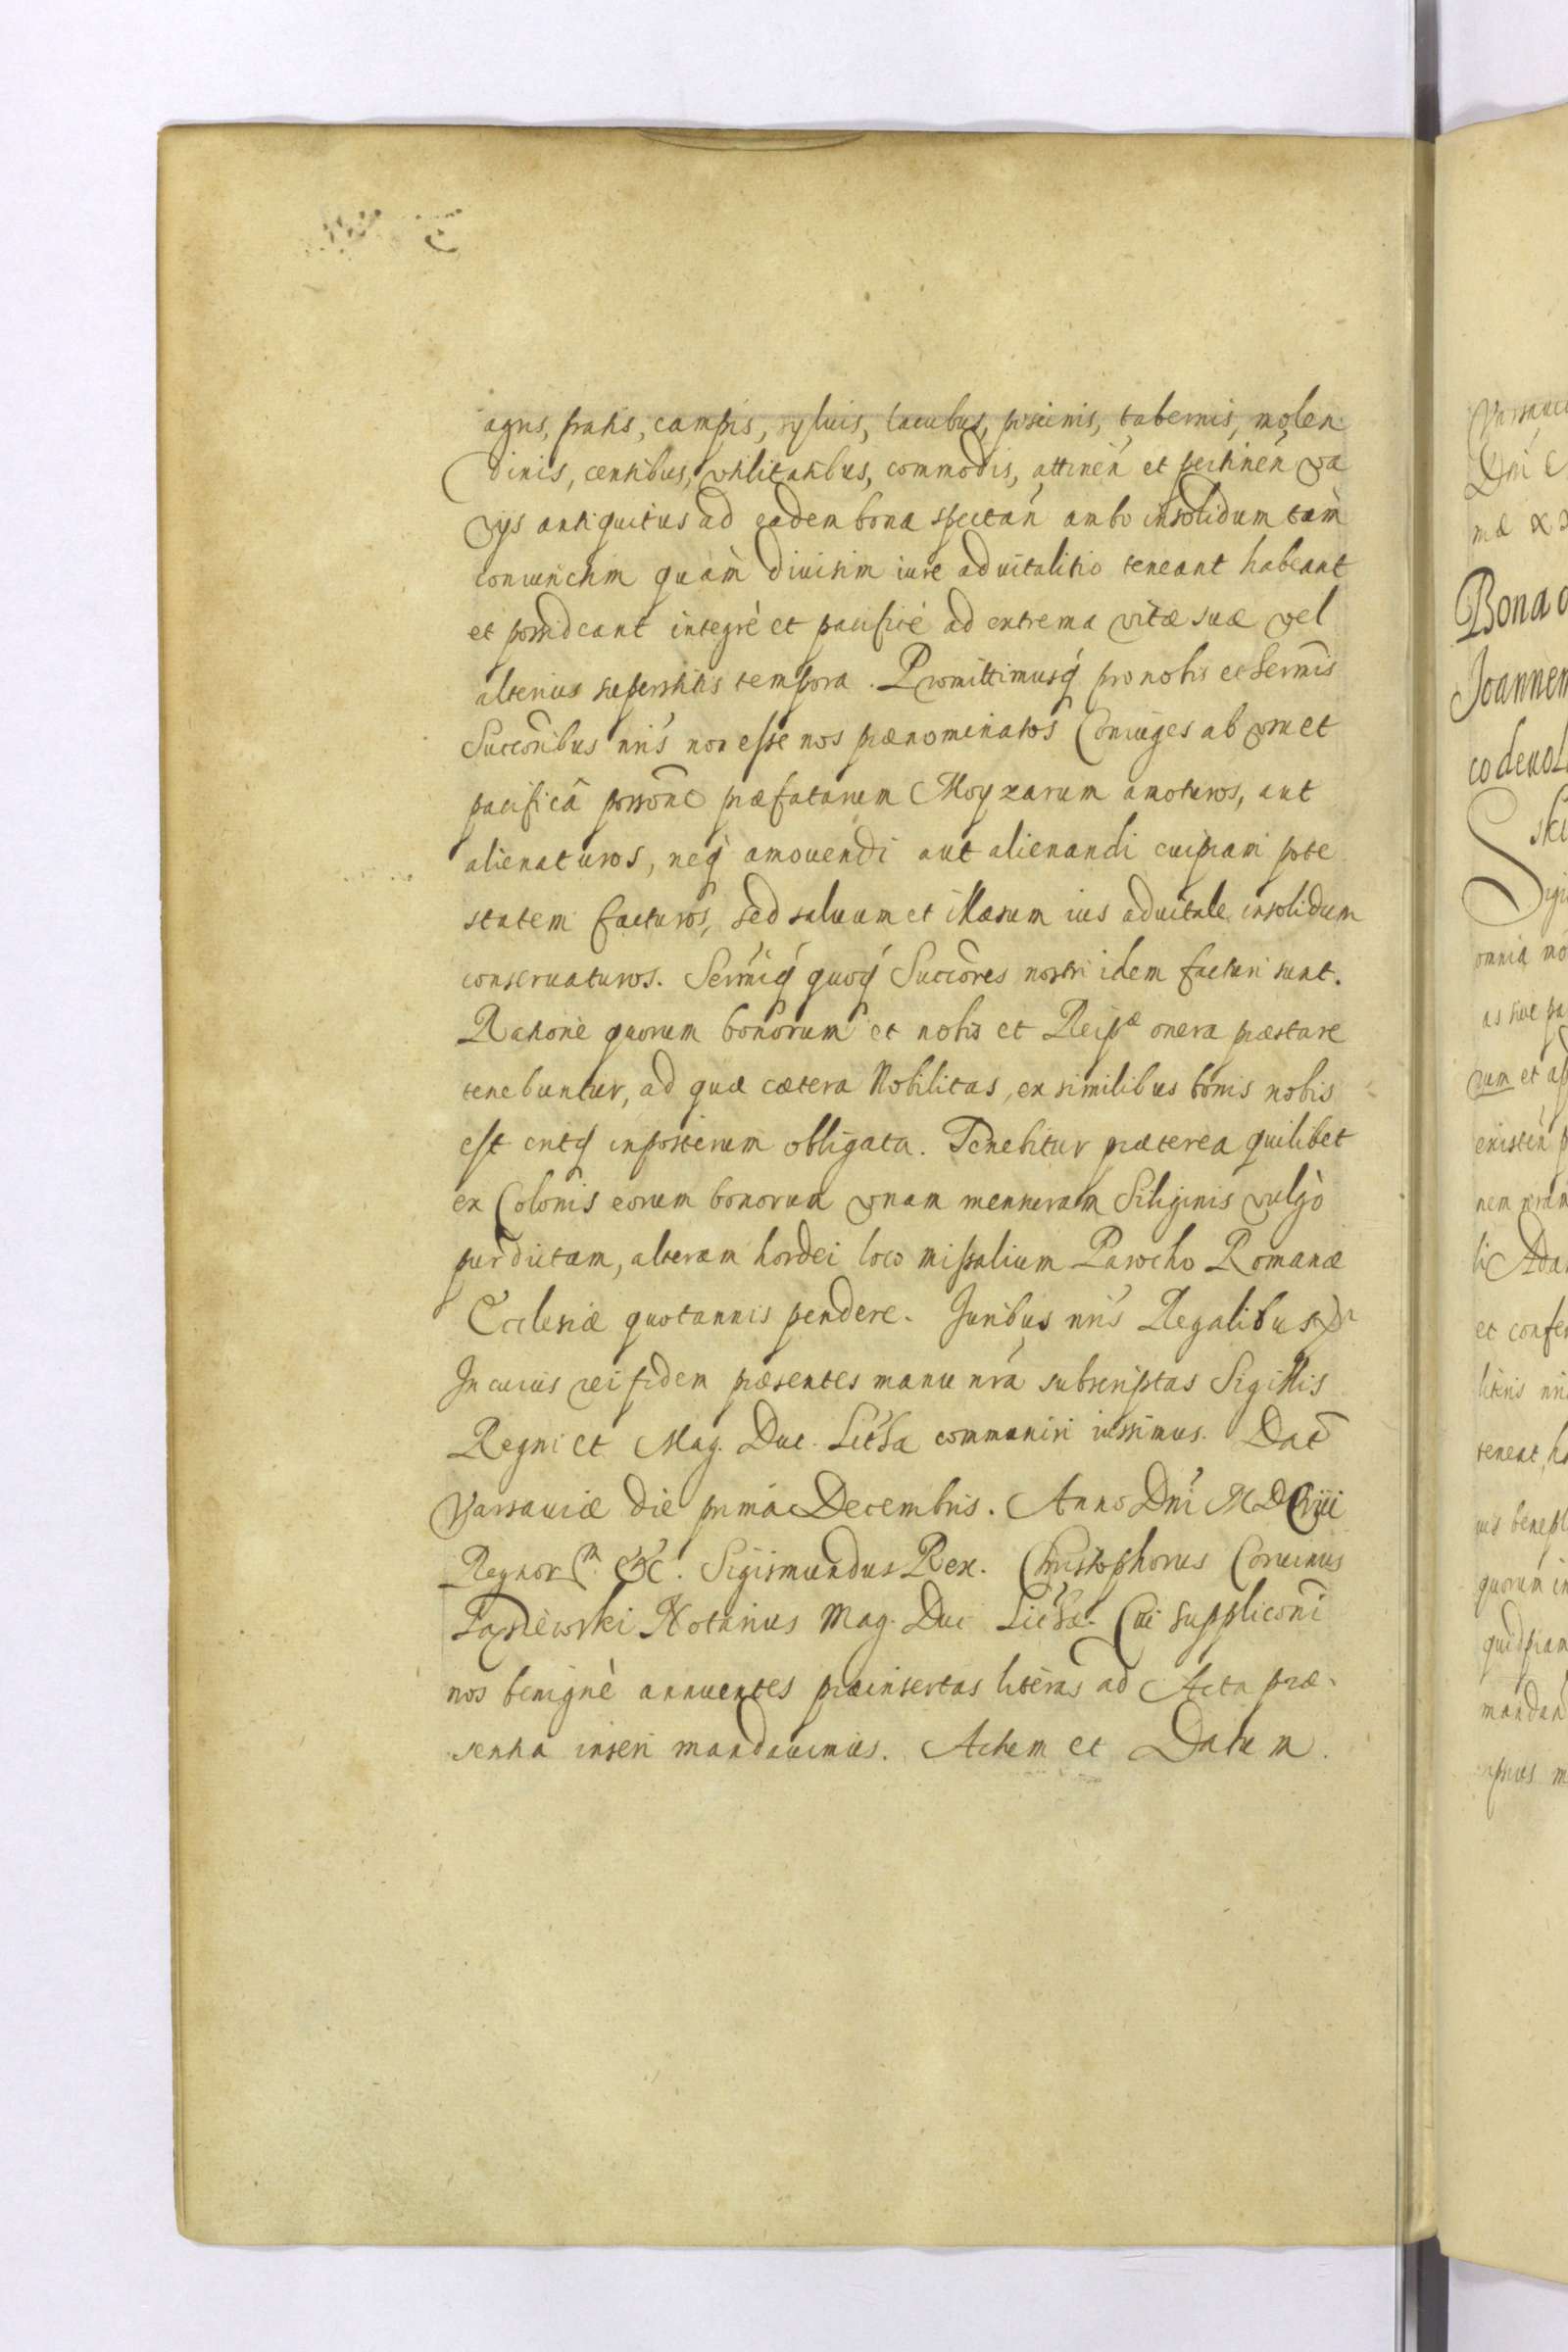 agris, pratis, campis, syluis, lacubus, piscinis, tabernis, molen
dinis, censibus, vtilitatibus, commodis, attineñ et pertineñ va
vijs antiquitus ad eadem bona spectań ambo insolidum tàm
coniunctim quàm diuisim iure aduitalitio teneant habeant
et possideant integrè et pacificè ad extrema vitæ suæ vel
alterius superstitis tempora. Promittimusq́ pro nobis et Serm̃is
Succoribus nr̃is non esse nos prænominatos Coniuges ab vsu et
pacificâ possone præfatarum Moyzarum amoturos, aut
alienaturos, neq́ amouendi aut alienandi cuipiam pote
statem facturos, sed saluum et illæsum ius aduitale insolidum
conseruaturos. Serm̃iq́ quoq́ Succores nostri idem facturi sunt.
Ratione quorum bonorum et nobis et Reipæ onera præstare
tenebuntur, ad quæ cætera Nobilitas, ex similibus bonis nobis
est eritq́ inposterum obligata. Tenebitur præterea quilibet
ex Colonis eorum bonorum vnam mensuram Siliginis vulgò
pur dictam, alteram hordei loco missalium Parocho Romanæ
Ecclesiæ quotannis pendere. Juribus nr̃is Regalibus
In cuius rei fidem præsentes manu nrã subscriptas Sigillis
Regni et Mag. Duc. Litħa communiri iussimus. Dat
Varsauiæ die prima Decembris. Anno Dni
Regnor &c. Sigismundus Rex. Christophorus Coruinus
Notarius Mag. Duc Litħæ. Cui suppliconi
nos benignè annuentes præinsertas literas ad Acta præ-
sentia inseri mandauimus. Actum et Datum.